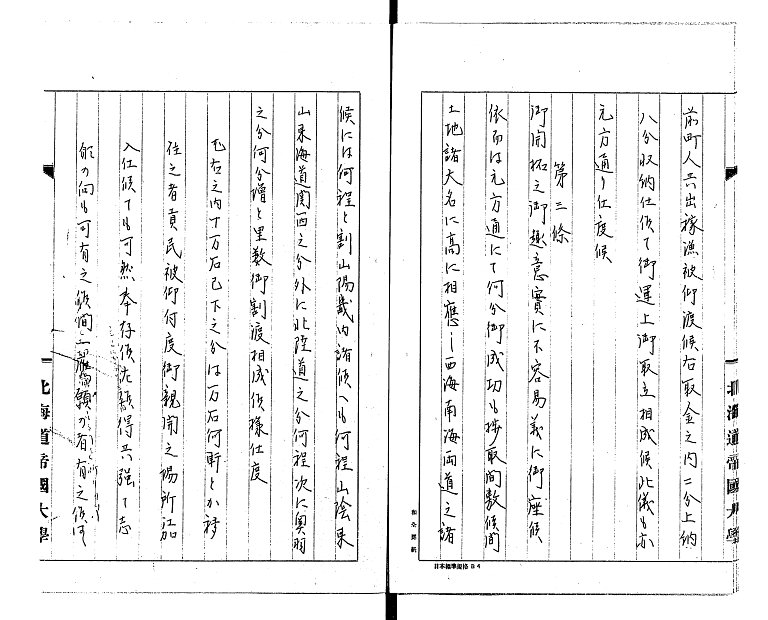 前町人共出稼漁被仰渡候右取金之内二分上納
八分収納仕候て御運上御取立相成候此儀も亦
元方通り仕度候
第三條
御開拓之御趣意實に不容易義に御座候
依而は元方通にて何分御成功も捗取間敷候間
土地諸大名に高に相應し西海南海両道之諸
日本標準規格B4
北海道帝國大學
候には何程と割山陽畿内諸候へも何程山陰東
山東海道関西之分外に北陸道之分何程次に奥羽
之分何分増と里数御割渡相成候様仕度
尤右之内十万石已下之分は万石何軒とか移
住之者貢民被仰付度御親開之場所江加
入仕候ても可然奉存候左候得共強て志
願の向も可有之候間
北海道帝國大學